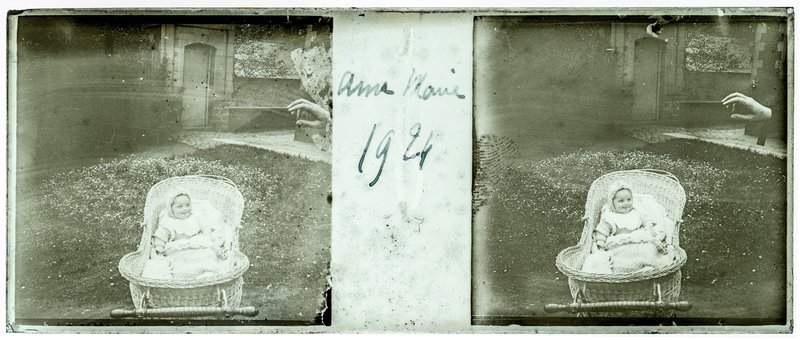 Anne Marie
1924